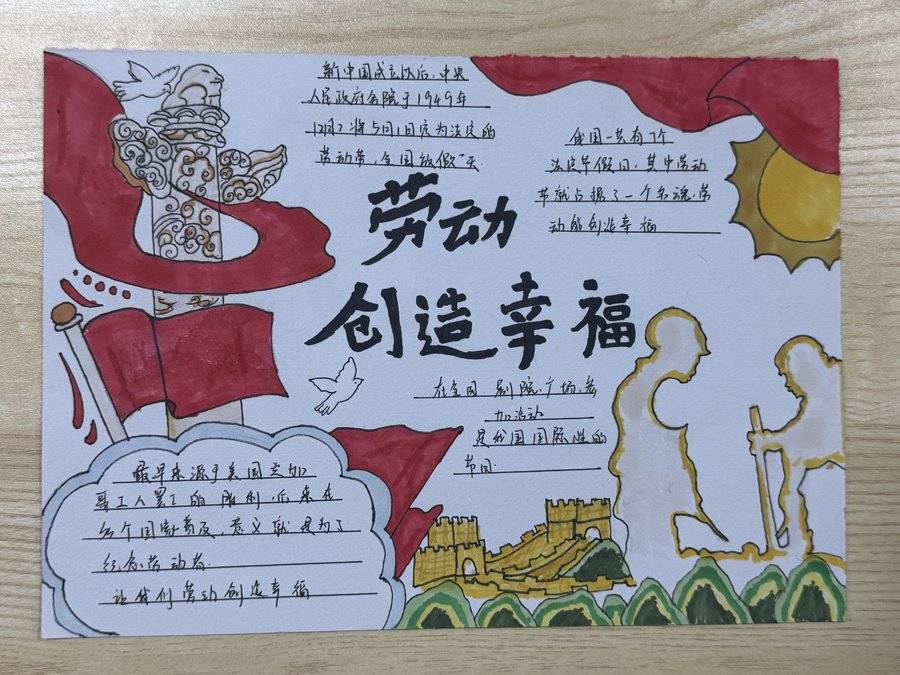 新中国成立以后,中央
人民政府务院于1949年
12月2将5月1日定为法定的
劳动节,全国放假一天
我国一共有7个
法定节假日,其中劳动
节就占据了一个名魂,劳
动能创造幸福
劳动
创造幸福
在全国 剧院、广场、参
加活动
是我国国际性的
节日.
最早来源于美国芝加
哥工人罢工的胜利,后来在
多个国家普及,意义就是为了
纪念劳动者.
让我们劳动创造幸福